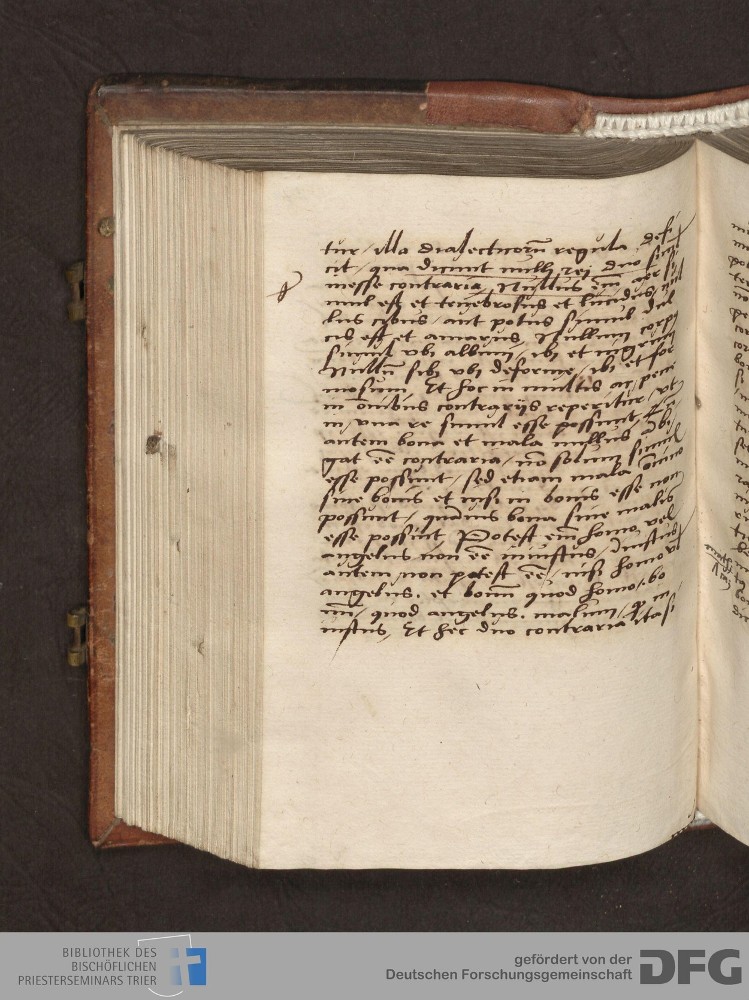 tur / illa dialecticorū regula defi
cit / qua dicunt nulli rei duo simul
inesse contraria / Nullus em̄ aer si
mul est et tenebrosus et lucidus, nul
lus cibus / aut potus simul dul
cis est et amarus, Nullum corpꝰ
simul vbi album / ibi et nigrum
Nullū sibi vbi deforme / ibi et for
mosum, Et hoc in multis ac pene
in oībus contrarijs reperitur / vt
in vna re simul esse possint,
autem bona et mala nullus ābi
gat eē contraria / nō solum simul
esse possunt / sed etiam mala oīmno
sine bonis et nisi in bonis esse non
possunt / quāuis bona sine malis
esse possint Potest em̄ homo vel
angelus non eē iniustus, Iniustus
autem non potest eē / nisi homo vl̄
angelus. et bonū quod homo / bo
nū / quod angelus. malum / qꝛ in
iustus, Et hec duo contraria ita si
BIBLIOTHEK DES
BISCHÖFLICHEN
PRIESTERSEMINARS TRIER
gefördert von der
Deutschen Forschungsgemeinschaft
DFG